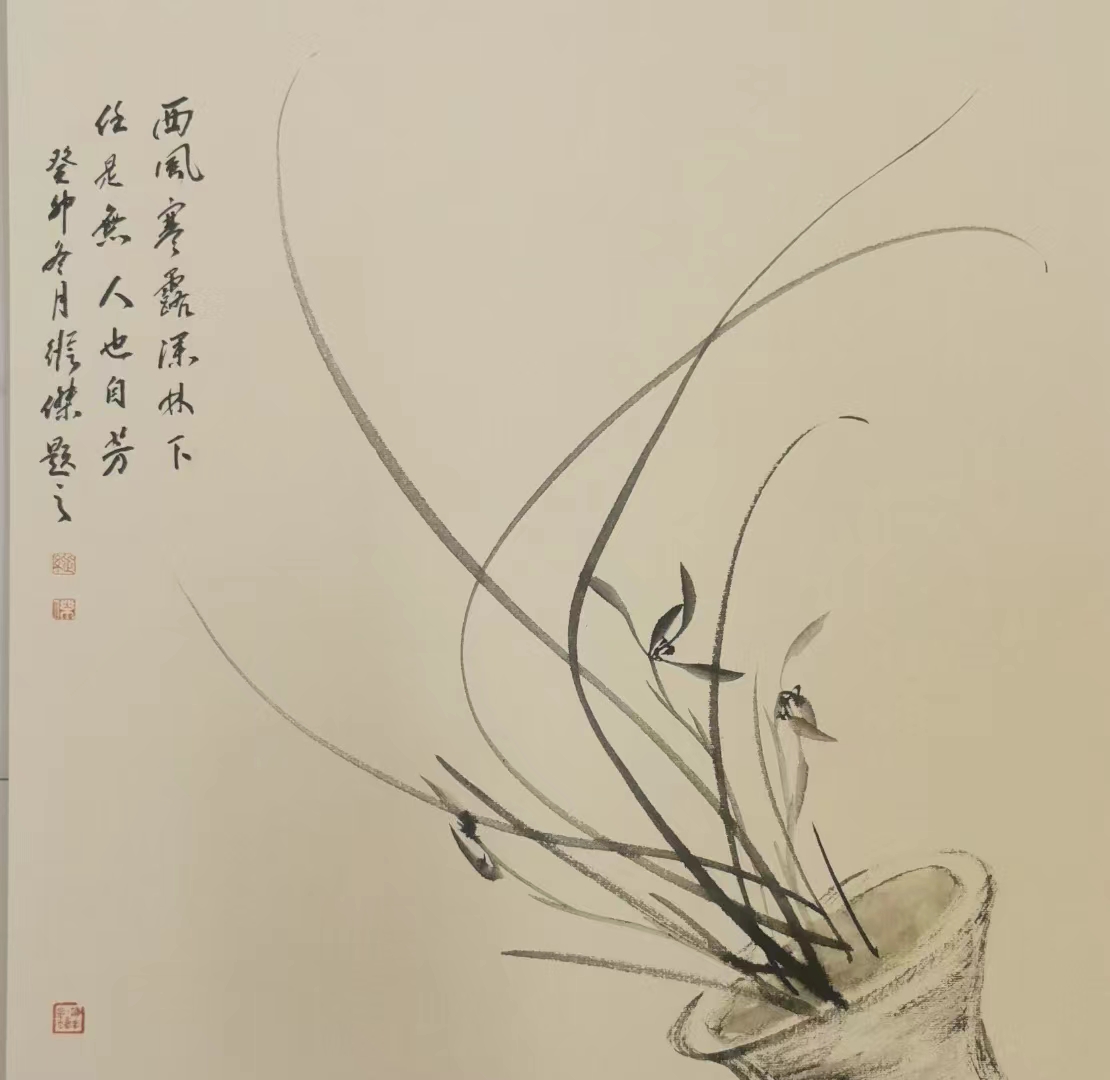 西風寒露深林下
任是無人也自芳
癸卯冬月 傑題之